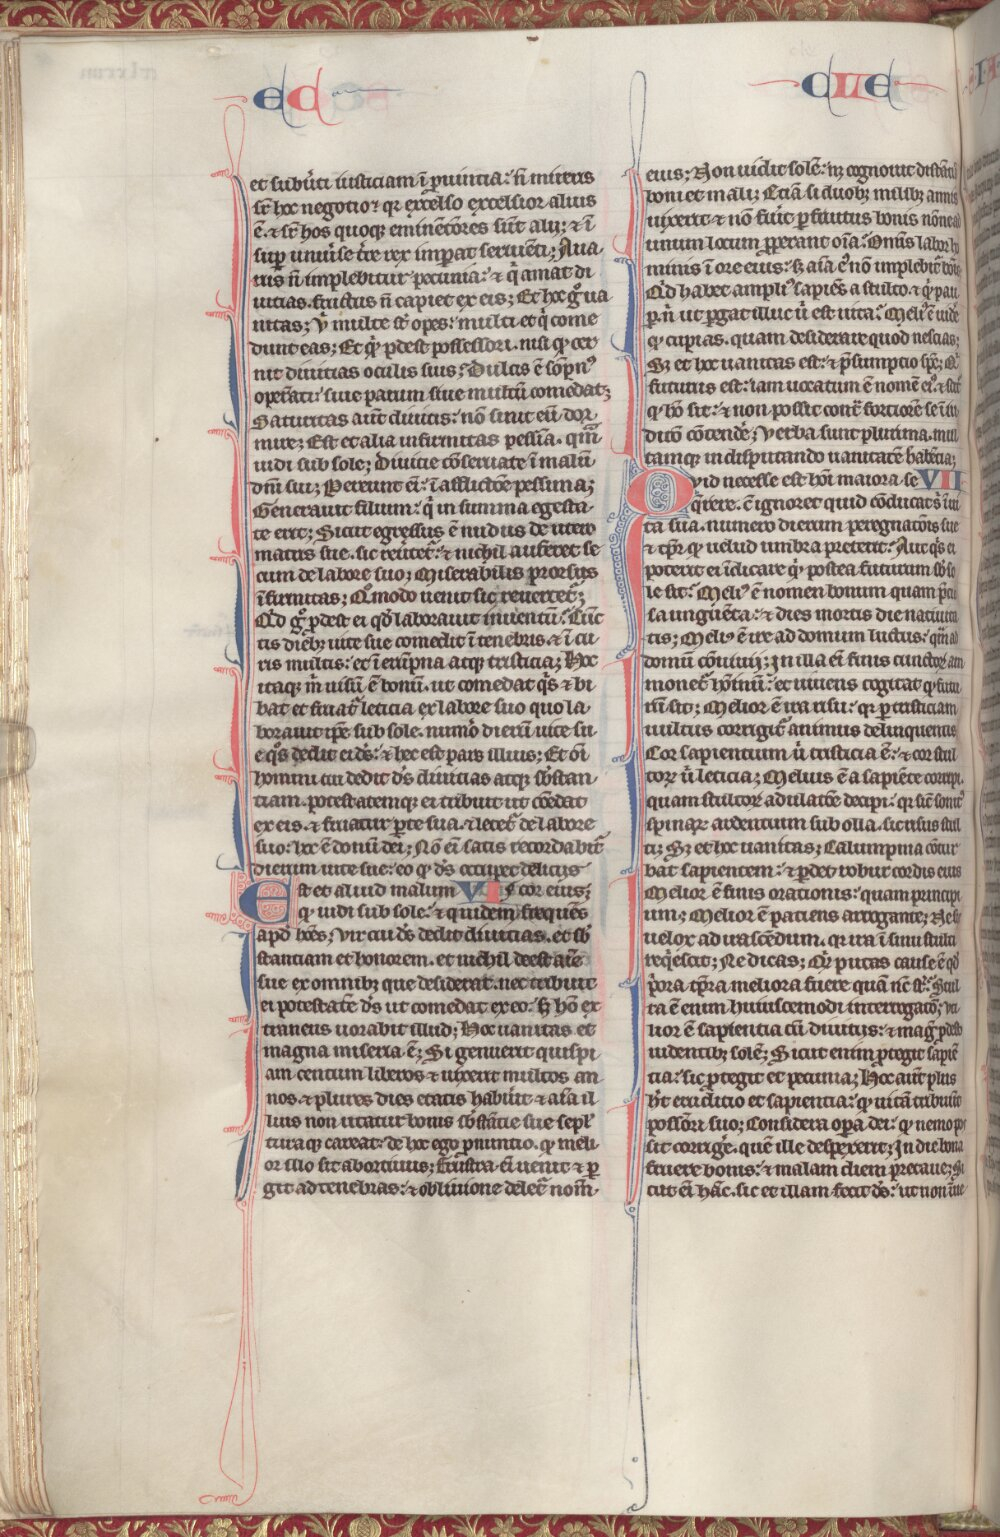 ec
et subũti iusticiam ĩ ꝓuincia: ñ mireris
sr̃ hoc negotio: qr excelso excelsior alius
ẽ. & sr̃ hos quoqꝫ eminẽtiores sũt alij; & ĩ
suꝑ uniũse tr̃e rex imꝑat seruiẽti; Aua
rus ñ implebitur pecunia: & q̃ amat di
uitias. fructus ñ capiet ex eis; Et hoc g̃ ua
nitas; Vͥ multe st̃ opes: multi et q̃ come
dunt eas; Et qͥ ꝓdest possessori. nisi qꝫ cer
nit diuitias oculis suis; Dulcis ẽ sõpn⁹
oꝑãti: siue parum siue multũ comedat;
Saturitas aut̃ diuitis: nõ sinit eũ dor
mire; Est et alia infirmitas pessĩa. qm̃
uidi sub sole; Diuicie cõseruate ĩ malũ
dñi sui; Pereunt eĩ: ĩ afflictõe pessima;
Generauit filium: q̃ in summa egesta
te erit; Sicut egressus ẽ nudus de utero
matris sue. sic reũtet̃: & nichil auferet se
cum de labore suo; Miserabilis prorsus
ĩfirmitas; Qͦmodo uenit sic reuertet̃;
Qͥd g̃ ꝓdest ei qd̃ laborauit in uentũ: Cũc
tis dieb; uite sue comedit ĩ tenebris. & ĩ cu
ris multis: et ĩ erũpna atqꝫ tristicia; Hoc
itaqꝫ m̃ uisũ ẽ bonũ. ut comedat q̃s & bi
bat et fruat̃ leticia ex labore suo quo la
borauit ip̃e sub sole. num̃o dierũ uite su
e q̃s dedit ei ds̃: & hec est pars illius; Et oĩ
homini cui dedit ds̃ diuitias atqꝫ sb̃stan
tiam. potestatemqꝫ ei tribuit ut cõedat
ex eis. & fruatur ꝑte sua. & letet̃ de labore
suo: hoc ẽ donũ dei; Nõ eĩ satis recordabit̃
dierum uite sue: eo qꝫ ds̃ occupet delicijs
Est et aliud malum VI cor eius;
qꝫ uidi sub sole. & quidem frequẽs
apd hoẽs; Vir cui ds̃ dedit diuitias. et sb̃
stantiam et honorem. et nichil deest aĩe
sue ex omnibꝫ que desiderat. nec tribuit
ei potestatẽ ds̃ ut comedat ex eo. sꝫ hõ ex
traneus uorabit illud; Hoc uanitas et
magna miseria ẽ; Si genuerit quispi
am centum liberos & uixerit multos an
nos. & plures dies etatis habũit & aĩa il
lius non utatur bonis sb̃stãtie sue sepl̃
turaqꝫ careat: de hoc ego ꝓnuntio. qꝫ meli
or illo sit abortiuus; Frustra eĩ uenit & ꝑ
git ad tenebras: & obliuione delet̃ nom̃
cle
eius; Non uidit solẽ: nqꝫ cognouit distãtiã
boni et mali; Etiã si duobꝫ milibꝫ annis
uixerit & nõ fũit ꝑfruitus bonis nõne ad
unum locum ꝓꝑant oĩa: Omĩs labor ho
minis ĩ ore eius: sꝫ aĩa eͥ nõ implebit̃ bõis
Qͥd habet ampli⁹ sapiẽs a stulto. & qͥ pau
ꝑ. ñ ut ꝑgat illuc ũ est uita: Meli⁹ ẽ uidẽ
qꝫ cupias. quam desiderare quod nescias;
Sꝫ et hoc uanitas est: & p̃sumptio sp̃c; Qͥ
futurus est: iam uocatum ẽ nomẽ eͥ. & scit̃
qꝫ hõ sit: & non possit cont̃ fortiorẽ se ĩ iu
ditõ cõtendẽ; Verba sunt plurima. mul
tamqꝫ in disputando uanitatẽ habẽtia;
Quid necesse est hoĩ maiora se VII
q̃rere. cͫ ignoret quid cõducat s̃ ĩ ui
ta sua. numero dierum peregnatõis sue
& tp̃r qꝫ uelud umbra preterit: Aut q̃s ei
poterit eĩ ĩdicare qͥ postea futurum sb̃ so
le sit: Meli⁹ ẽ nomen bonum quam p̃cio
sa ungũẽta: & dies mortis die natiuita
tis; Meli⁹ ẽ ire ad domum luctus: qm̃ ad
domũ cõuiuij; In illa eĩ finis cunctoꝝ am
monet̃ hõinũ: et uiuens cogitat qꝫ futu
rũ sit; Melior ẽ ira risu: qr ꝑ tristiciam
uultus corrigit̃ animus delinquentis
Cor sapientium ũ tristicia ẽ: & cor stul
toꝝ ũ leticia; Melius ẽ a sapiẽte corripi.
quam stultoꝝ adulatõe decipi. qr sic̃ sonit⁹
spinaꝝ ardentium sub olla. sic risus stul
ti; Sꝫ et hoc uanitas; Calumpnia cõtur
bat sapientem: & ꝑdet robur cordis eius
Melior ẽ finis orationis: quam principi
um; Melior ẽ paciens arrogante; Ne sis
uelox ad irascẽdum. qr ira ĩ sinu stulti
req̃escit; Ne dicas; Qͥ putas cause ẽ qd̃
p̃ora tp̃ra meliora fuere quã nc̃ st̃: Stul
ta ẽ enim huiuscemodi interrogatõ; Uti
lior ẽ sapientia cũ diuitijs: & mag̃ ꝓdest
uidentibꝫ solẽ; Sicut enim ꝓtegit sapiẽ
tia: sic ꝓtegit et pecunia; Hoc aut̃ plus
hr̃t eruditio et sapientia: qꝫ uitã tribuũt
possõri suo; Considera oꝑa dei: qꝫ nemo pos
sit corrigẽ. quẽ ille despexerit; In die bona
fruere bonis: & malam diem precaue; Si
cut eĩ hãc. sic et illam fecit ds̃: ut non ĩue